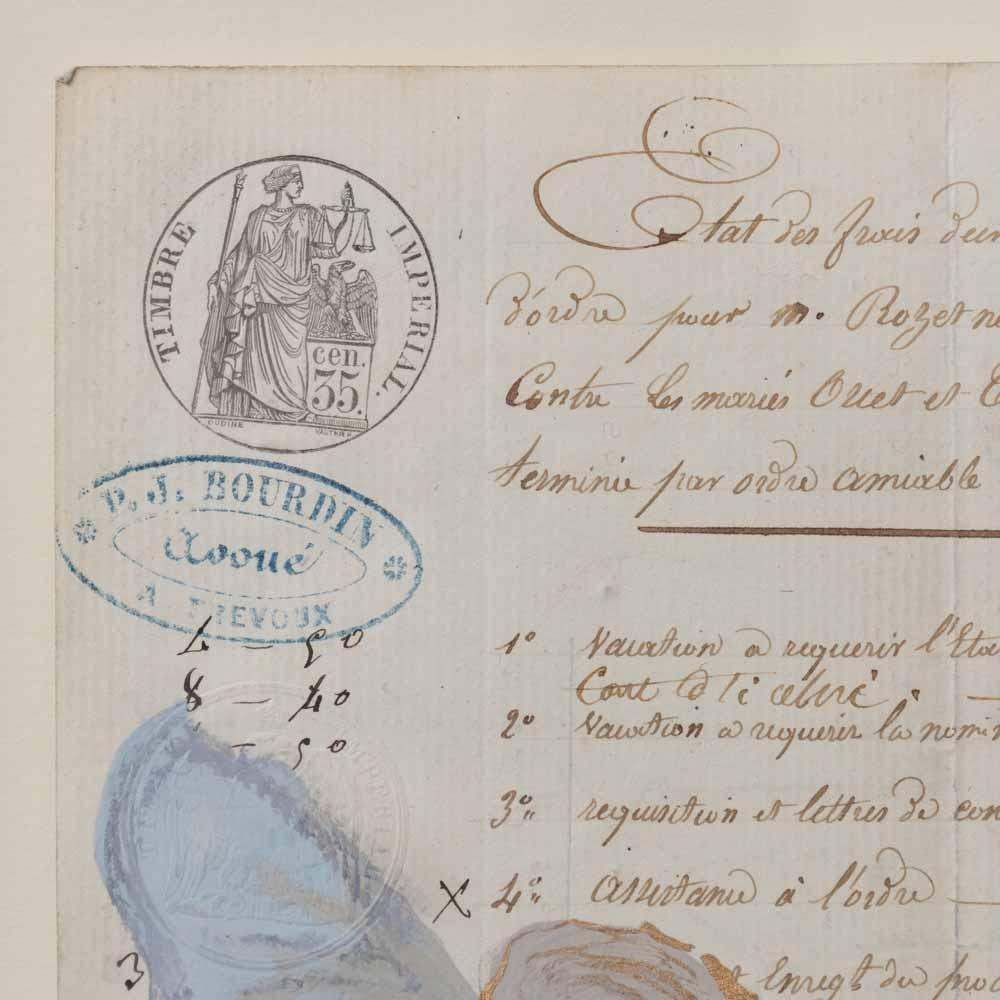 TIMBRE IMPERIAL.
cen.
35.
OUDINE
P. J. BOURDIN
Avoué
A TREVOUX
Etat des frais d'un
d'ordre pour m. Rozet
Contre les mariés Ouet et
terminé par ordre amiable
4 — 50
8 — 40
— 50
1º Vacation a requerir l'Eta
2º Vacation a requerir la nomin
3º requisition et lettres de con
X 4º assistance à l'ordre —
3
Enregt du pro